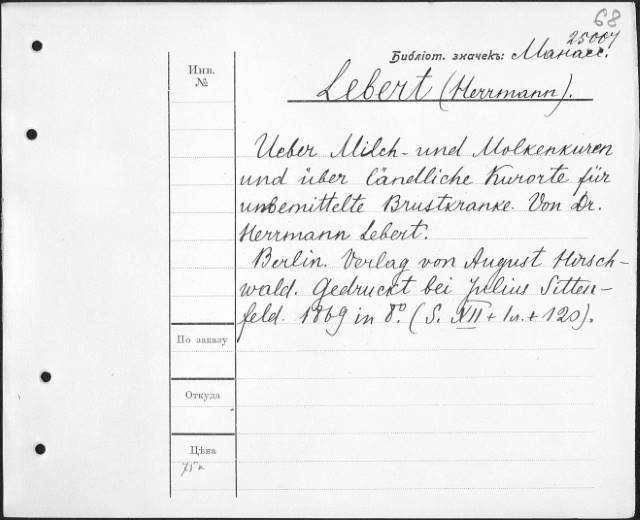 68
25007
Библіот. значекъ: Манасс.
Инв.
№
Lebert (Herrmann).
Ueber Milch- und Molkenkuren
und über ländliche Kurorte für
unbemittelte Brustkranke. Von Dr.
Herrmann Lebert.
Berlin. Verlag von August Hirsch-
wald. Gedruckt bei Julius Sitten-
feld. 1869 in 8º. (S. XII + 1л. + 120).
По заказу
Откуда
Цѣна
75 к